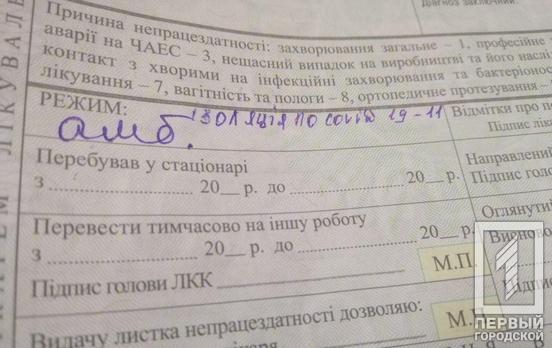 Діагноз заключний
Причина непрацездатності: захворювання загальне – 1, професійне
аварії на ЧАЕС – 3, нещасний випадок на виробництві та його насл
контакт з хворими на інфекційні захворювання та бактеріонос
лікування – 7, вагітність та пологи – 8, ортопедичне протезування –
РЕЖИМ:
амб. ізоляція по covid 19 - 11
Відмітки про п
Підпис ліка
Перебував у стаціонарі
з 20__ р. до 20__ р.
Направлений
Підпис голо
Перевести тимчасово на іншу роботу
з 20__ р. до 20__ р.
Оглянутий
Висново
Підпис голови ЛКК М.П.
Підпис
Видачу листка непрацездатності дозволяю:
М.П.
1
ПЕРВЫЙ
ГОРОДСКОЙ